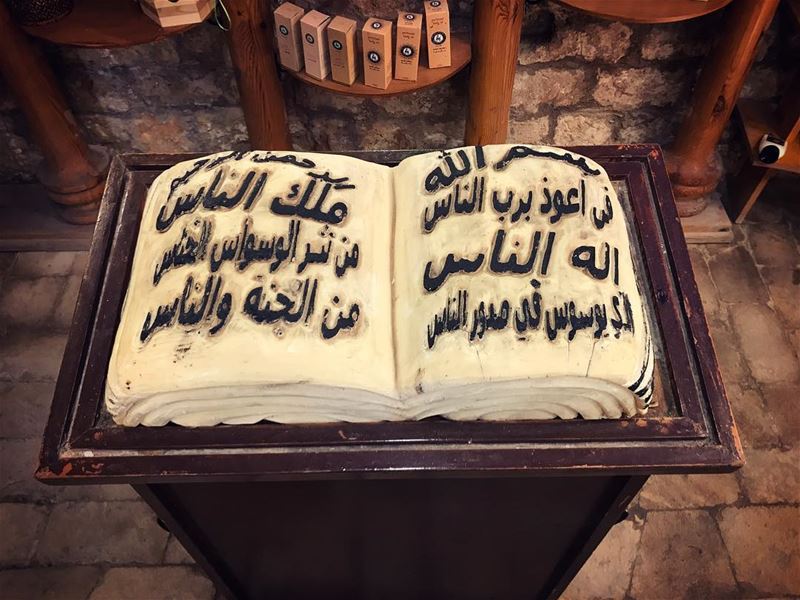 بسم الله
الرحمن الرحيم
قل اعوذ برب الناس
ملك الناس
اله الناس
من شر الوسواس الخناس
الذي يوسوس في صدور الناس
من الجنه والناس